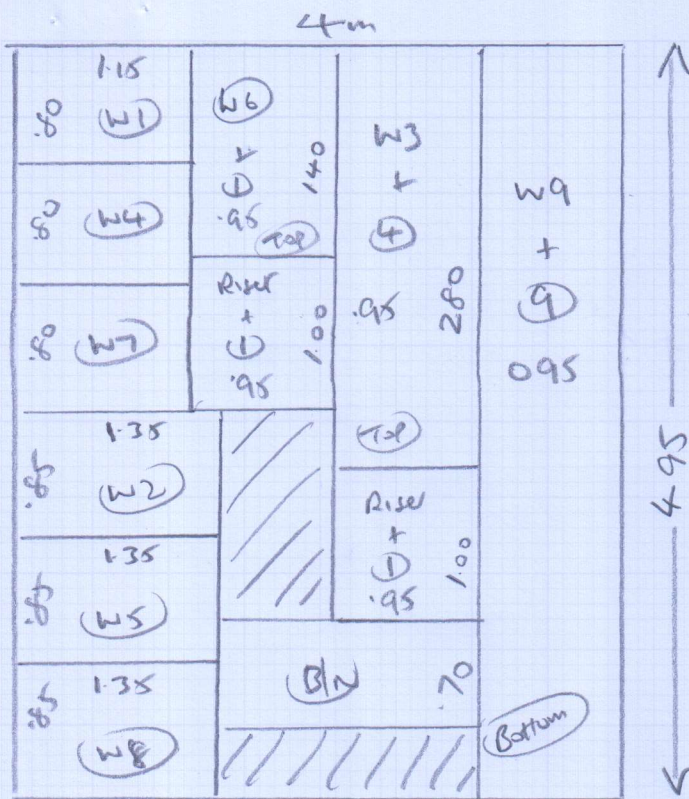 4m
1.15
.80
W1
.80
W4
.80
W7
1.35
.85
W2
1.35
.85
W5
1.35
.85
W8
W6
+
1
.95
140
Top
Riser
+
1
.95
1.00
W3
+
4
.95
280
Top
Riser
+
1
.95
1.00
B/N
.70
W9
+
9
095
Bottom
495